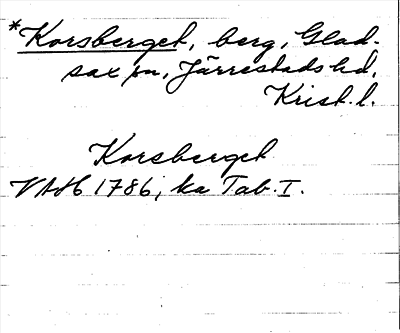 *Korsberget, berg, Glad-
sax sn, Järrestads hd,
Krist. l.
Korsberget
VAH 1786, ka Tab. I.